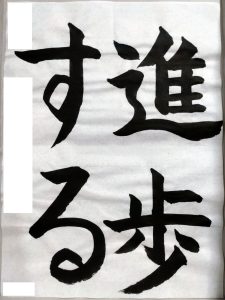 進歩
する